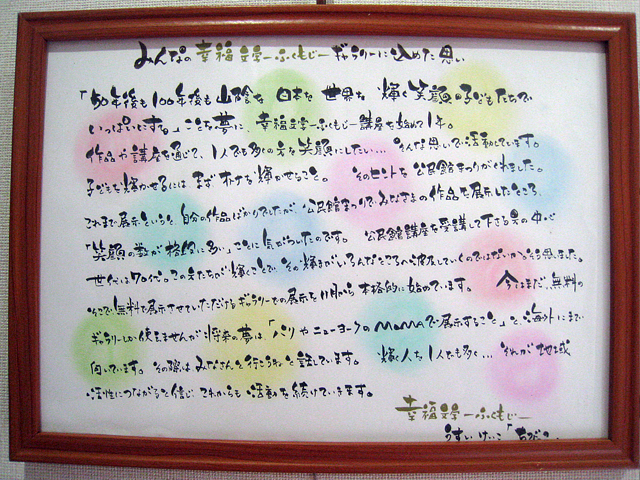 みんなの幸福文字ーふくもじーギャラリーに込めた思い
「50年後も100年後も山陰を 日本を 世界を 輝く笑顔の子どもたちで
いっぱいにする。」ことを夢に、幸福文字ーふくもじー講座を始めて1年。
作品や講座を通じて、1人でも多くの方を笑顔にしたい… そんな思いで活動しています。
子どもを輝かせるには まず オトナを輝かせること。 そのヒントを 公民館まつりがくれました。
これまで展示というと、自分の作品ばかりでしたが、公民館まつりでみなさまの作品を展示したところ、
「笑顔の数が格段に多い」ことに気がついたのです。 公民館講座を受講して下さる男の中心
世代は70代。この方たちが輝くことで、その輝きがいろんなところへ波及していくのではないか?そう思いました。
そこで、無料で展示させていただけるギャラリーでの展示を11月から 本格的に始めています。 今はまだ、無料の
ギャラリーしか使えませんが、将来の夢は、「パリやニューヨークのMoMAで展示すること」と、海外にまで
向いています。 その際は みなさんと行こうねと話しています。 輝く人を1人でも多く… それが地域
活性につながると信じ これからも 活動を続けていきます。
幸福文字ーふくもじー
うすい けいこ